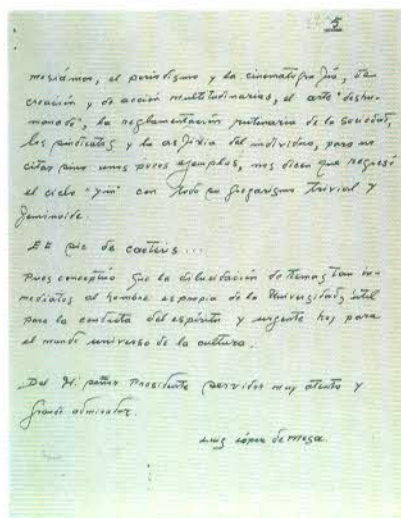 5
mesiánico, el periodismo y la cinematografía, de
creación y de acción multitudinarias, el arte "deshu-
manado", la reglamentación rutinaria de la sociedad,
los sindicatos y la asfixia del individuo, para no
citar sino unos pocos ejemplos, nos dicen que regresó
el ciclo "yin" con todo su gregarismo trivial y
feminoide.
Et sic de caeteris...
Pues conceptúo que la dilucidación de temas tan in-
mediatos al hombre es propia de la Universidad, útil
para la conducta del espíritu y urgente hoy para
el mundo universo de la cultura.
Del Mi señor Presidente servidor muy atento y
grande admirador.
Luis López de Mesa